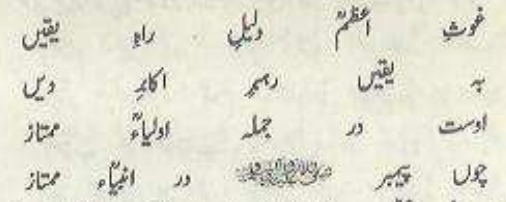 غوثِ اعظمؒ دلیلِ راہِ یقیں
بہ یقیں رہبرِ اکابرِ دیں
اوست در جملہ اولیاءؒ ممتاز
چوں پیمبر صلی اللہ علیہ وسلم در انبیاءؑ ممتاز